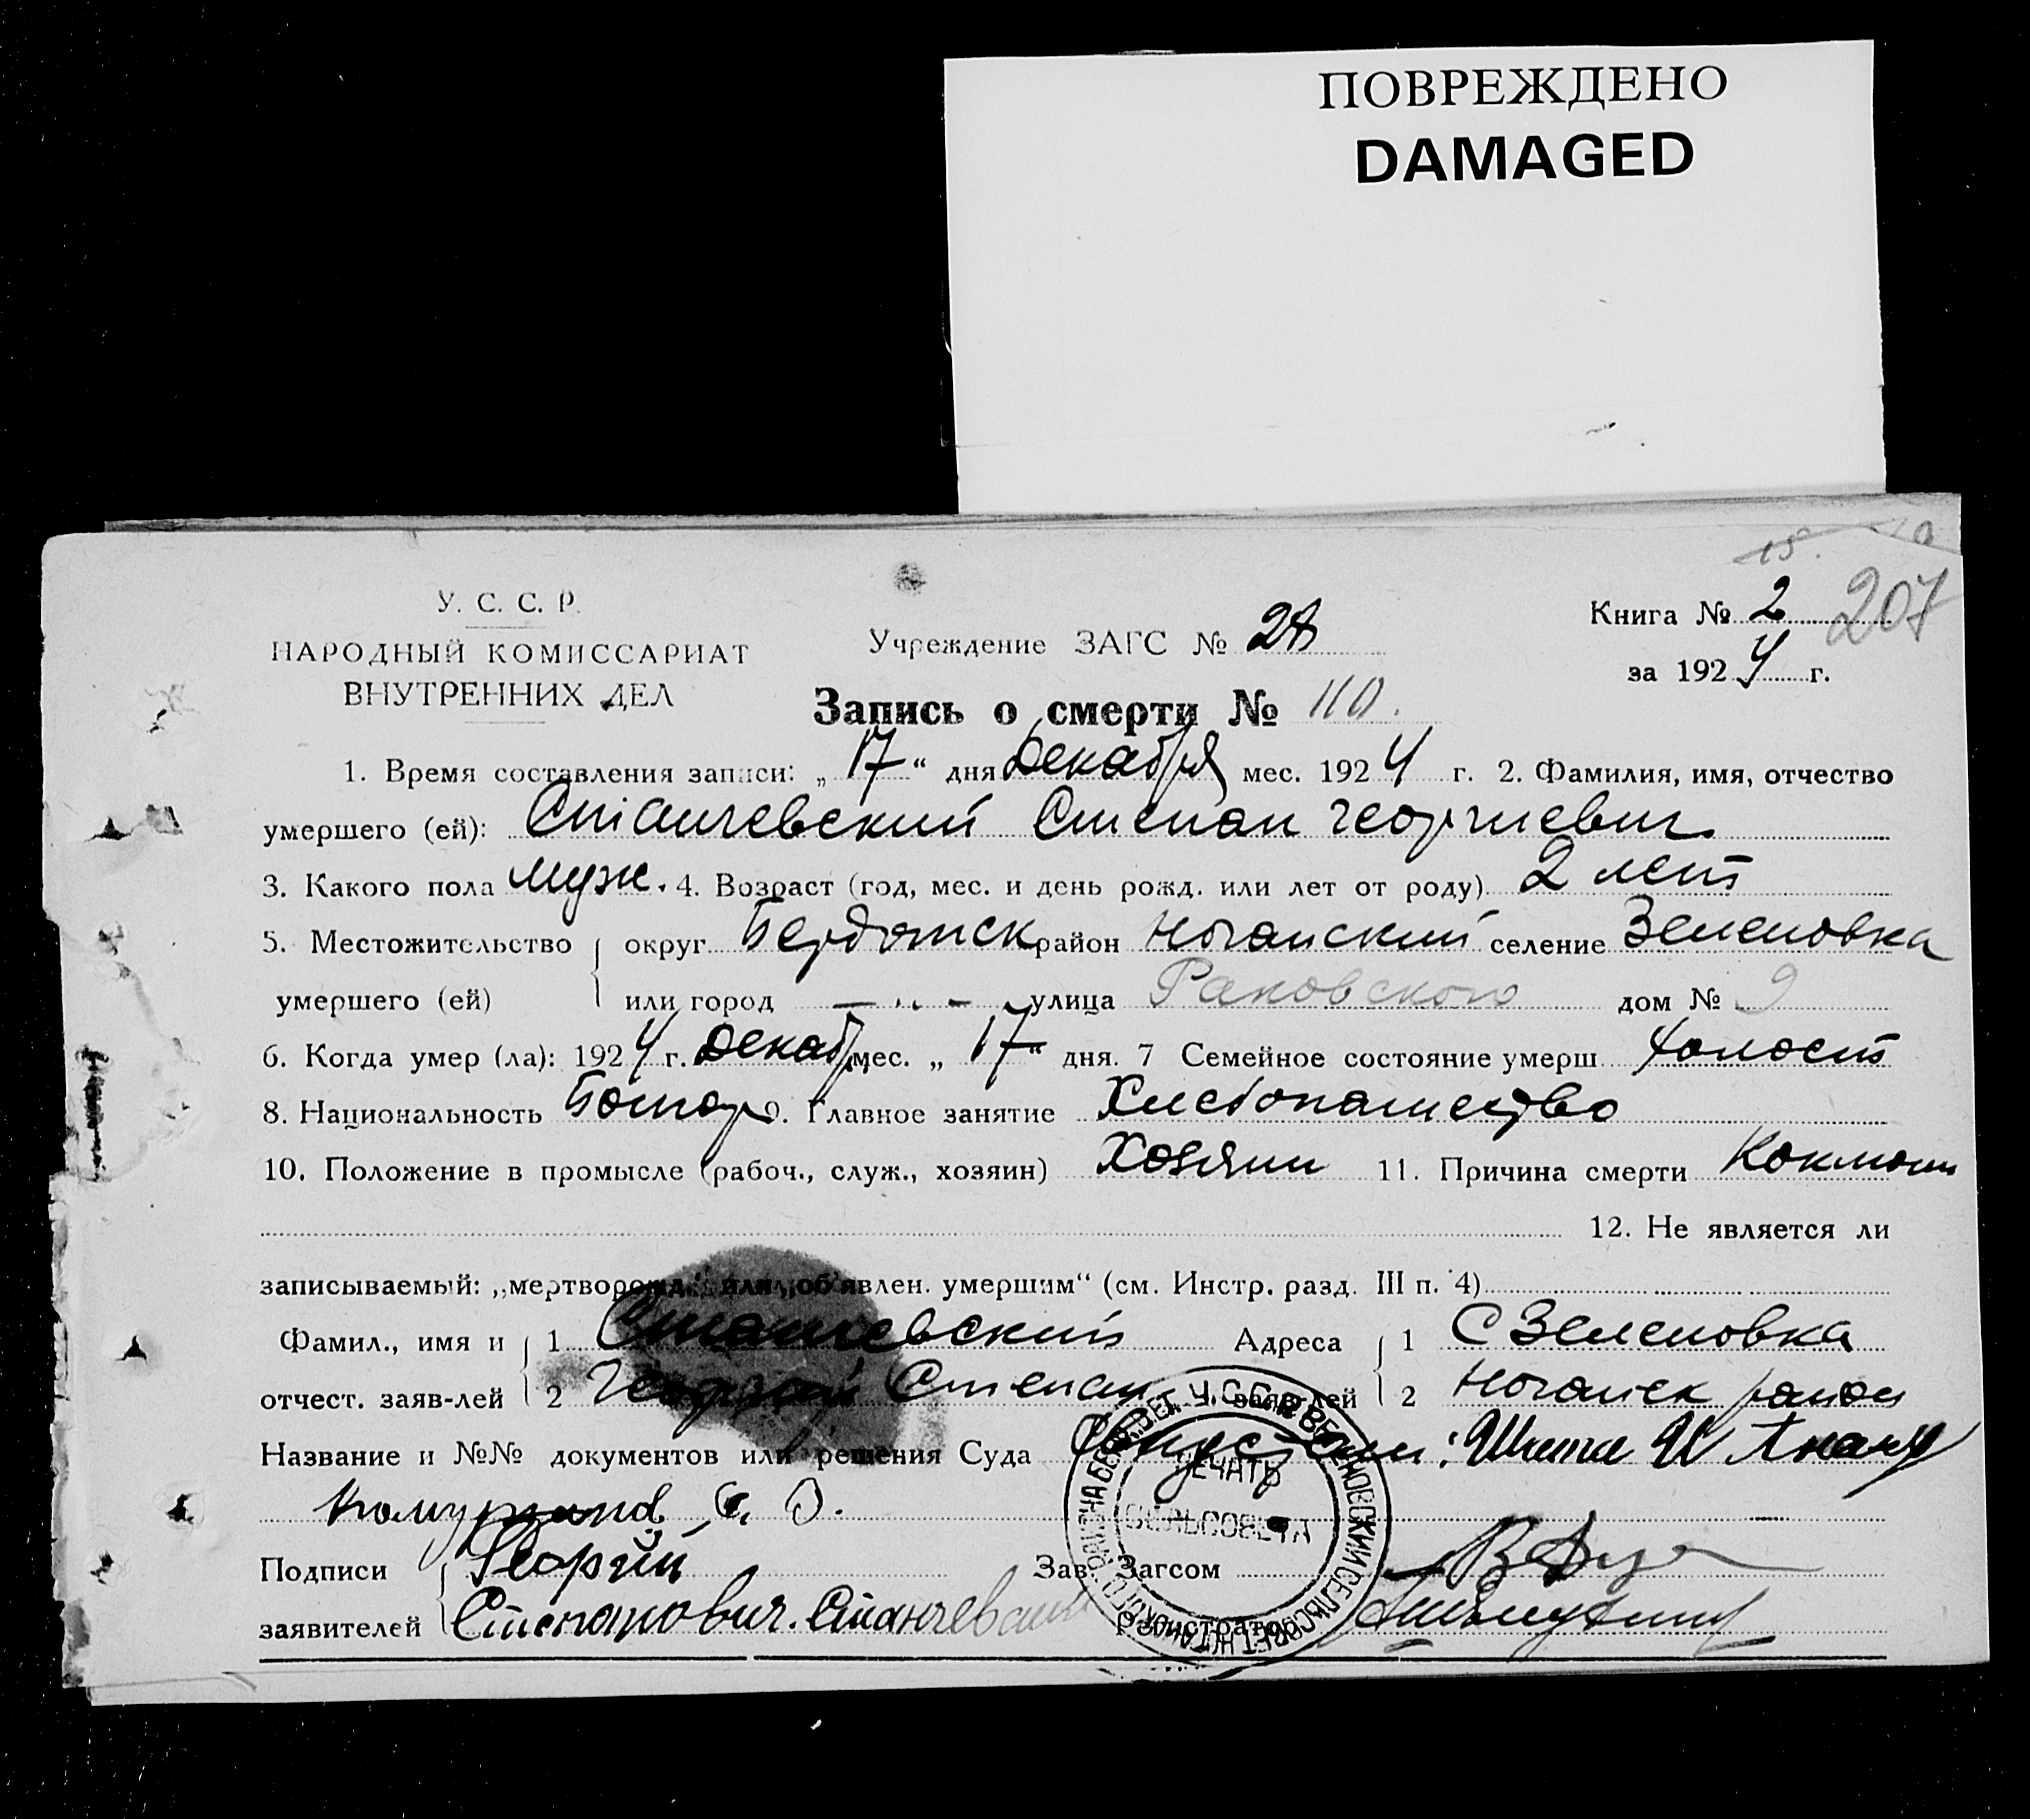 ПОВРЕЖДЕНО
DAMAGED
15.
У. С. С. Р.
НАРОДНЫЙ КОМИССАРИАТ
ВНУТРЕННИХ ДЕЛ
Учреждение ЗАГС № 28
Книга № 2 207
за 1924 г.
Запись о смерти № 110.
1. Время составления записи: „17“ дня Декабря мес. 1924 г. 2. Фамилия, имя, отчество
умершего (ей): Станчевский Степан Георгиевич
3. Какого пола муж. 4. Возраст (год, мес. и день рожд. или лет от роду) 2 лет
5. Местожительство округ Бердянск район Ногайский селение Зеленовка
умершего (ей) или город — „ — улица Раковского дом № 9
6. Когда умер (ла): 1924 г. Декабр мес. „17“ дня. 7 Семейное состояние умерш Холост
8. Национальность Болгар 9. Главное занятие Хлебопашество
10. Положение в промысле (рабоч., служ., хозяин) Хозяин 11. Причина смерти Коклюш
12. Не является ли
записываемый: „мертворожд.“ или „об'явлен. умершим“ (см. Инстр. разд. III п. 4)
Фамил., имя и 1 Станчевский Адреса 1 С Зеленовка
отчест. заяв-лей 2 Георгий Степан заяв-лей 2 Ногайск район
Название и №№ документов или решения Суда
Подписи Георгий Зав. Загсом
заявителей Степанович. Станчевский Регистратор
ПЕЧАТЬ
СЕЛЬСОВЕТА